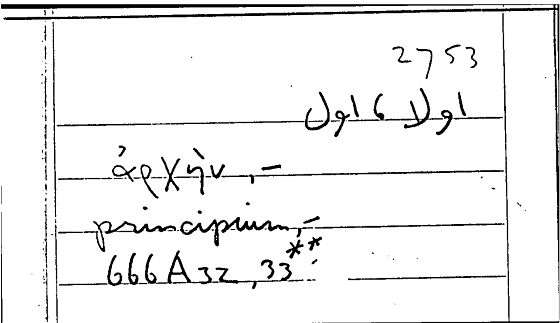 2753
اولا ، اول
ἀρχὴν ,–
principium,–
666A32,33**